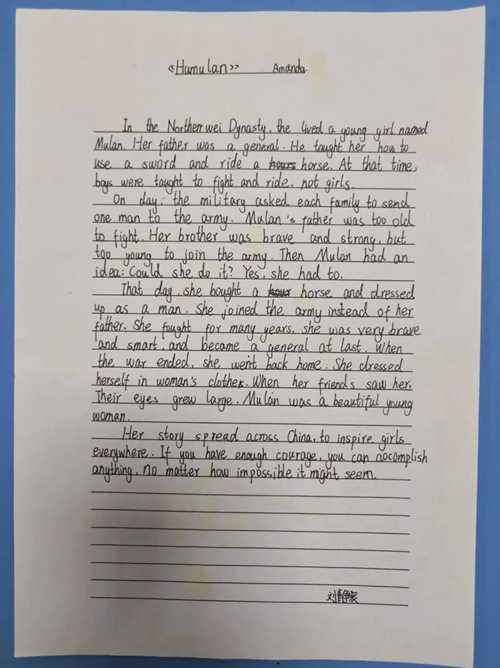 «Humulan»    Amanda
In the Northern wei Dynasty, the lived a young girl named
Mulan. Her father was a general. He taught her how to
use a sword and ride a horse. At that time,
boys were taught to fight and ride, not girls.
On day, the military asked each family to send
one man to the army. Mulan's father was too old
to fight. Her brother was brave and strong, but
too young to join the army. Then Mulan had an
idea: Could she do it? Yes, she had to.
That day, she bought a horse and dressed
up as a man. She joined the army instead of her
father. She fught for many years, she was very brave
and smart, and became a general at last. When
the war ended, she went back home. She dressed
herself in woman's clothes. When her friends saw her.
Their eyes grew large. Mulan was a beautiful young
woman.
Her story spread across China, to inspire girls
everywhere. If you have enough courage, you can accomplish
anything, no matter how impossible it might seem.